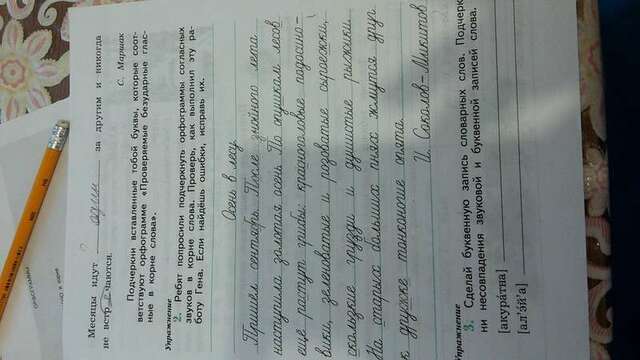 ОРФОГРАММЫ
в корне
Месяцы идут один за другим и никогда
не встречаются.
С. Маршак
Подчеркни вставленные тобой буквы, которые соот-
ветствуют орфограмме «Проверяемые безударные глас-
ные в корне слова».
Упражнение
2. Ребят попросили подчеркнуть орфограммы согласных
звуков в корне слова. Проверь, как выполнил эту ра-
боту Гена. Если найдёшь ошибки, исправь их.
Осень в лесу
Пришёл сентябрь. После знойного лета
наступила золотая осень. По опушкам лесов
ещё растут грибы: красноголовые подосино-
вики, зеленоватые и розоватые сыроежки,
скользкие грузди и душистые рыжики.
На старых больших пнях жмутся друг
к дружке тонконогие опята.
И. Соколов-Микитов
Упражнение
3. Сделай буквенную запись словарных слов. Подчерк-
ни несовпадения звуковой и буквенной записей слова.
[акура́тна]
[ал'э́й'а]